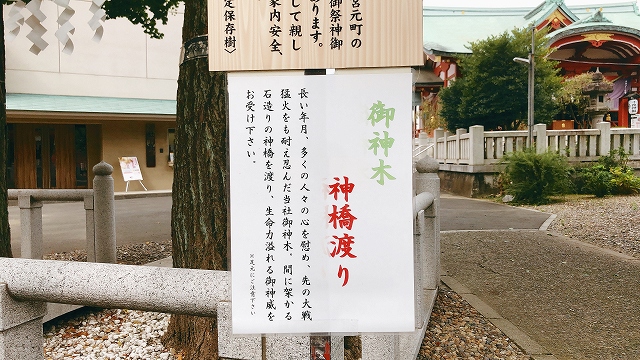 宮元町の
御祭神御
あります。
して親し
家内安全、
定保存樹〉
御神木
神橋渡り
長い年月、多くの人々の心を慰め、先の大戦
猛火をも耐え忍んだ当社御神木。間に架かる
石造りの神橋を渡り、生命力溢れる御神威を
お受け下さい。
※足元にご注意下さい